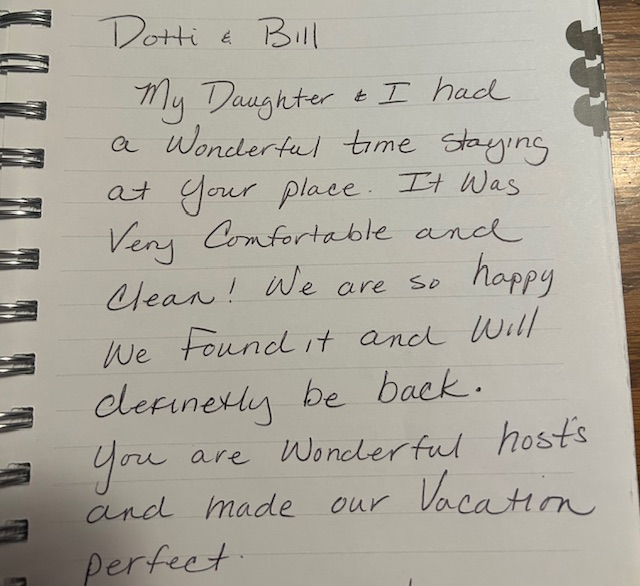 Dotti & Bill
My Daughter & I had
a Wonderful time staying
at your place. It Was
Very Comfortable and
Clean! We are so happy
We Found it and Will
definetly be back.
You are Wonderful host's
and made our Vacation
perfect.